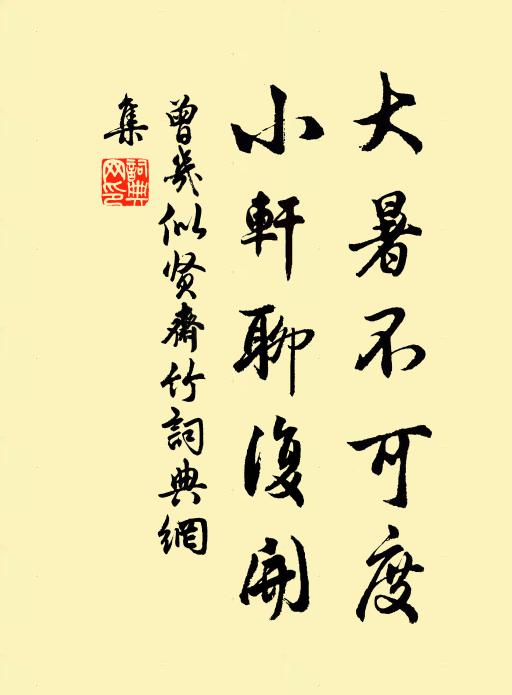 大暑不可度
小軒聊復開
曾幾似贤齋竹詞典網
集
詞典
网印